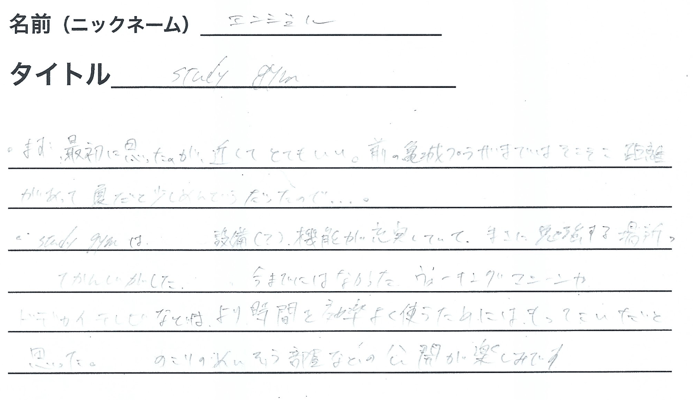 名前（ニックネーム） エンジェル
タイトル study gym
・まず、最初に思ったのが、近くてとてもいい。前の亀城プラザまではそこそこ距離
があって夏だと少しめんどうだったので…。
・study gymは 設備(?)、機能が充実していて、まさに勉強する場所っ
てかんじがした。 今までにはなかった ヴェーディングマシーンや
などは、より時間を効率よく使うためにはもってこいだと
思った。 のこりの 部屋などの公開が楽しみです